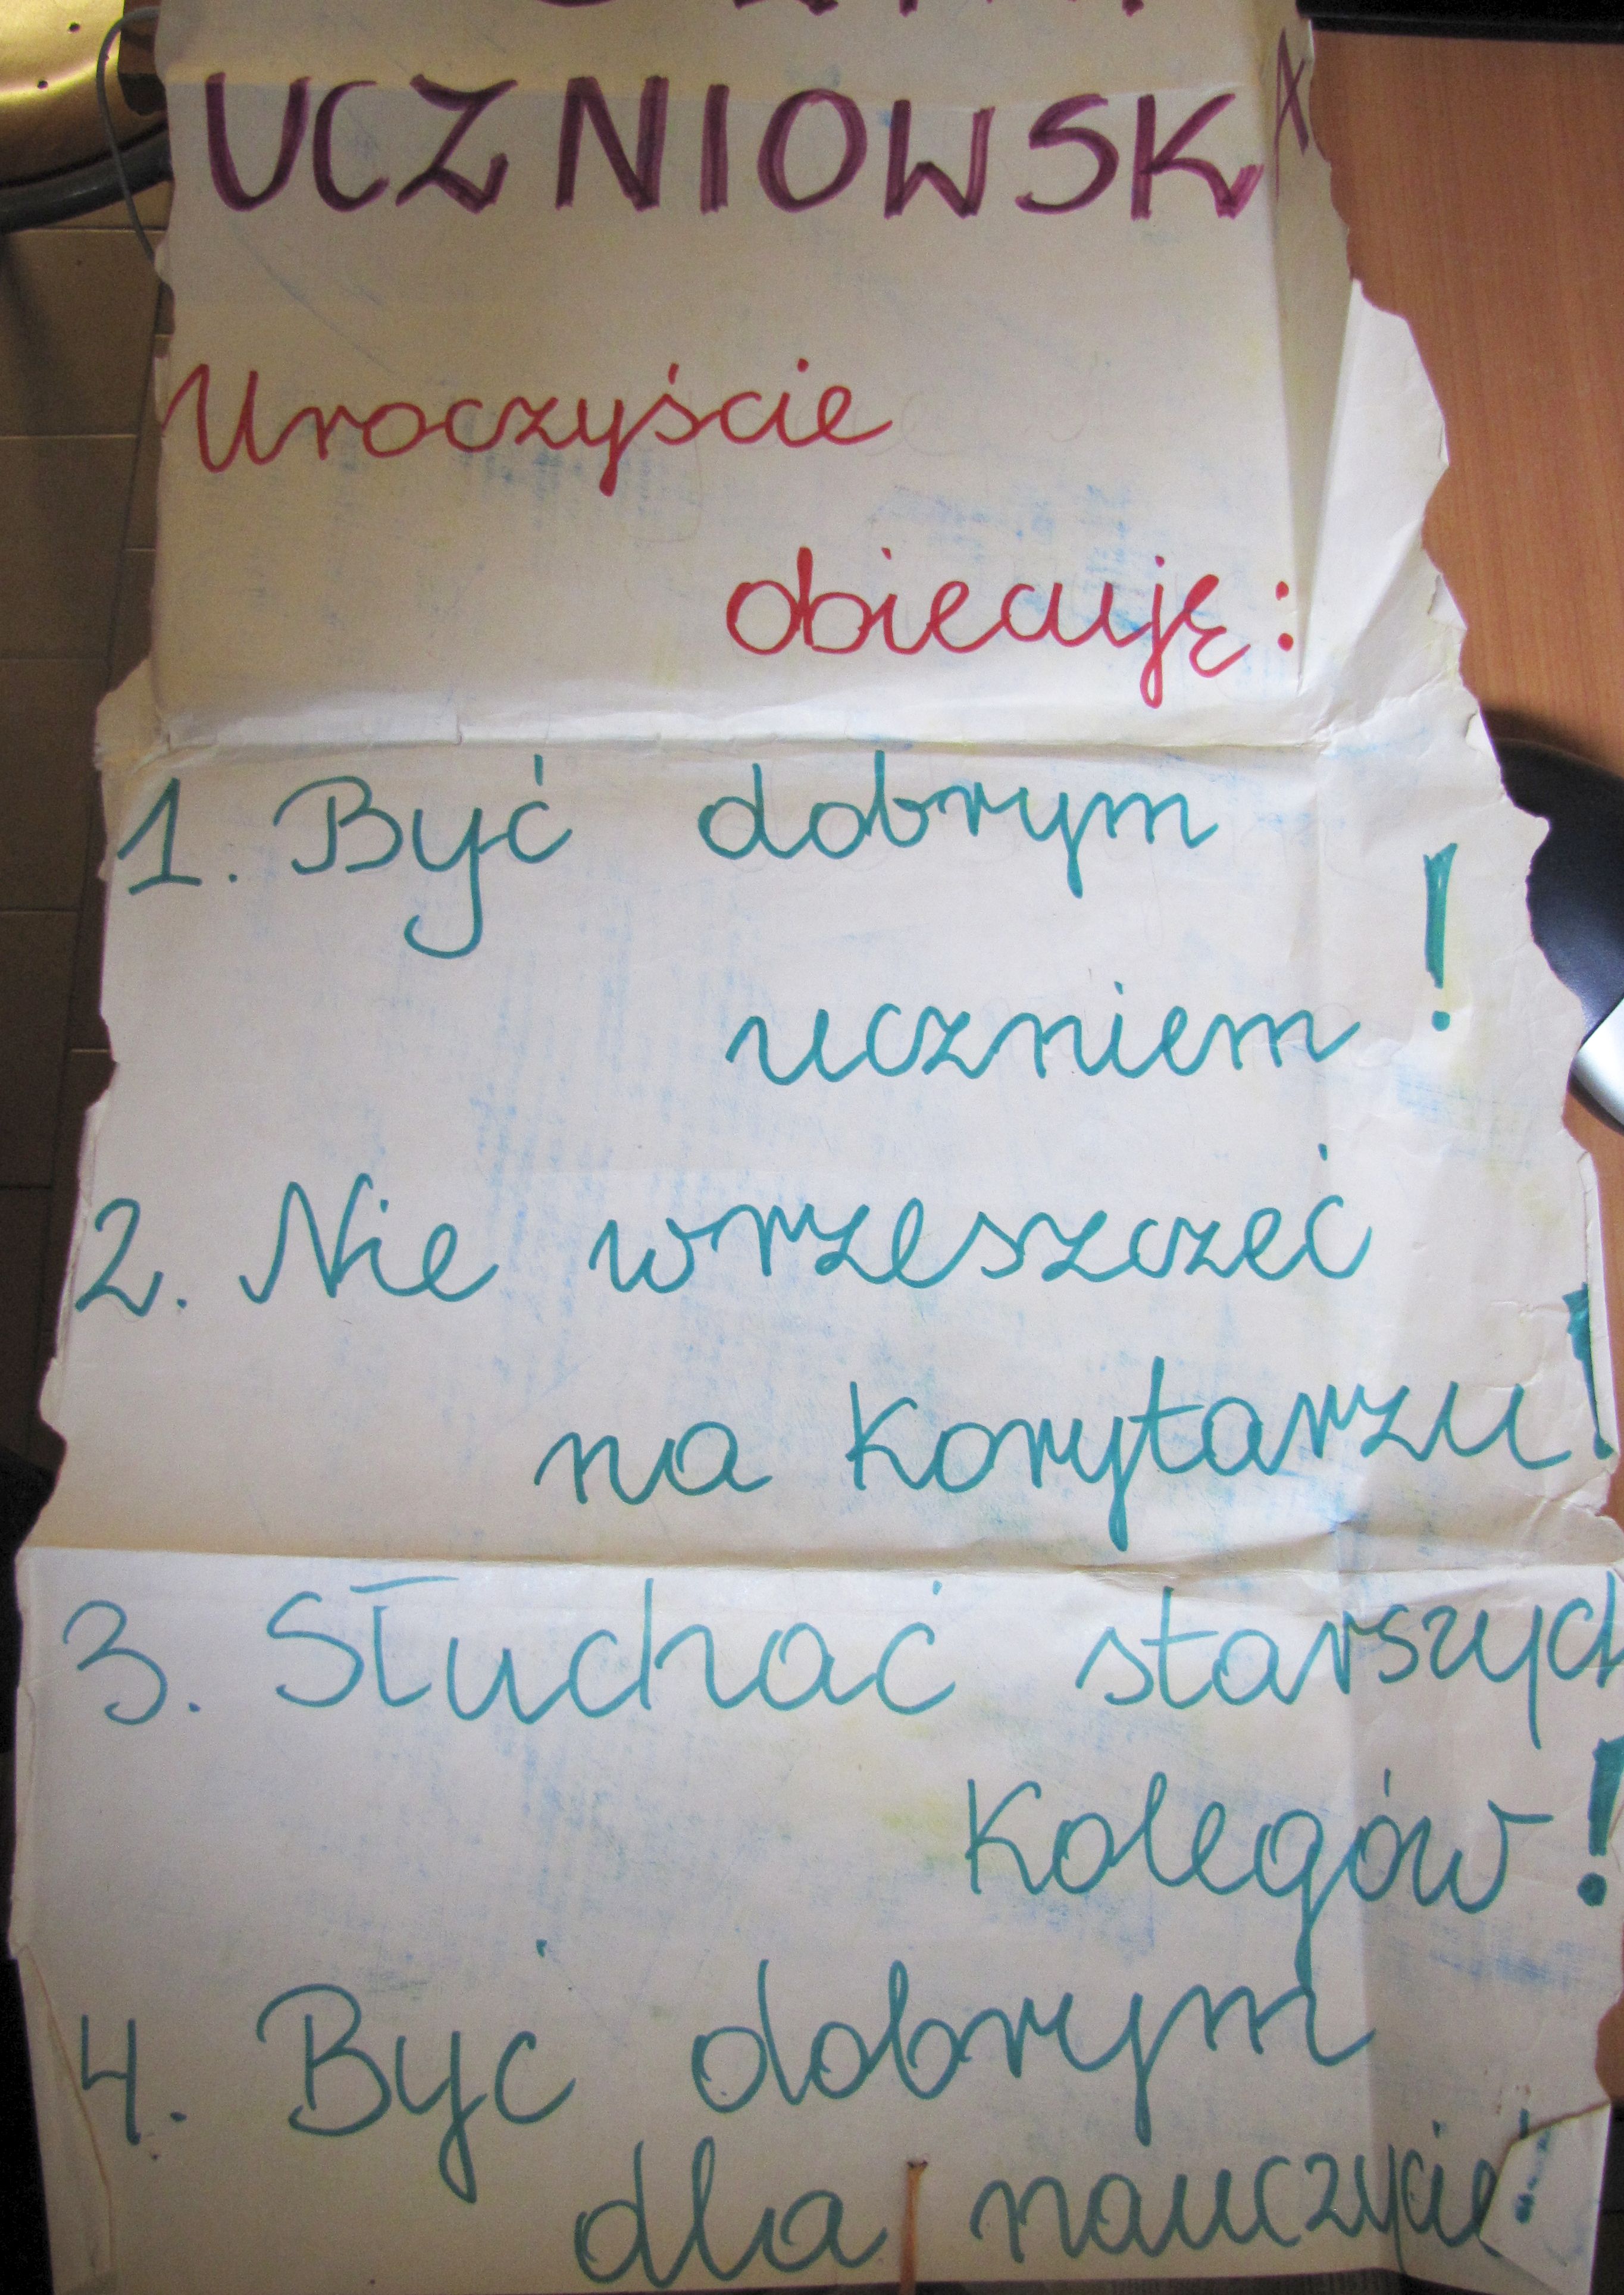 UCZNIOWSKA
Uroczyście
obiecuję:
1. Być dobrym
uczniem!
2. Nie wrzeszczeć
na korytarzu!
3. Słuchać starszych
kolegów!
4. Być dobrym
dla